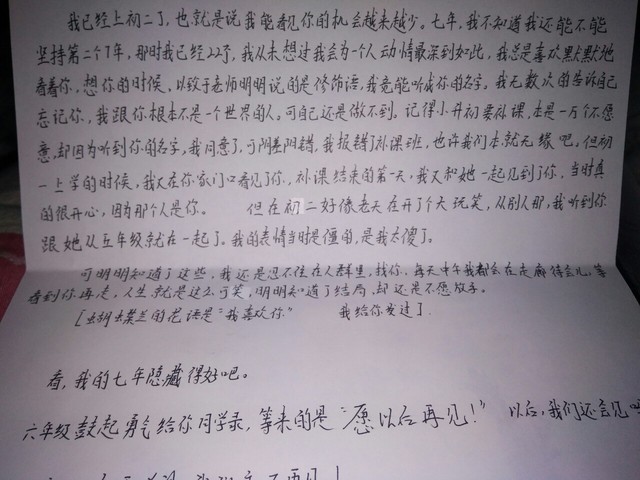 我已经上初二了，也就是说我能看见你的机会越来越少。七年，我不知道我还能不能
坚持第二个7年，那时我已经22了，我从未想过我会为一个人动情最深到如此，我总是喜欢默默地
看着你，想你的时候，以致于老师明明说的是修饰语，我竟能听成你的名字。我无数次的告诉自己
忘记你，我跟你根本不是一个世界的人。可自己还是做不到。记得小升初要补课，本是一万个不愿
意，却因为听到你的名字，我同意了，可阴差阴错，我报错了补课班，也许我们本就无缘吧，但初
一上学的时候，我又在你家门口看见了你，补课结束的第一天，我又和她一起见到了你，当时真
的很开心，因为那个人是你。 但在初二好像老天在开了个大玩笑，从别人那，我听到你
跟她从五年级就在一起了。我的表情当时是僵的，是我太傻了。
可明明知道了这些，我还是忍不住在人群里，找你，每天中午我都会在走廊待会儿，等
看到你再走，人生就是这么可笑，明明知道了结局，却还是不愿放手。
[蝴蝶兰的花语是“我喜欢你” 我给你发过]
看，我的七年隐藏得好吧。
六年级鼓起勇气给你同学录，等来的是“愿以后再见！” 以后，我们还会见